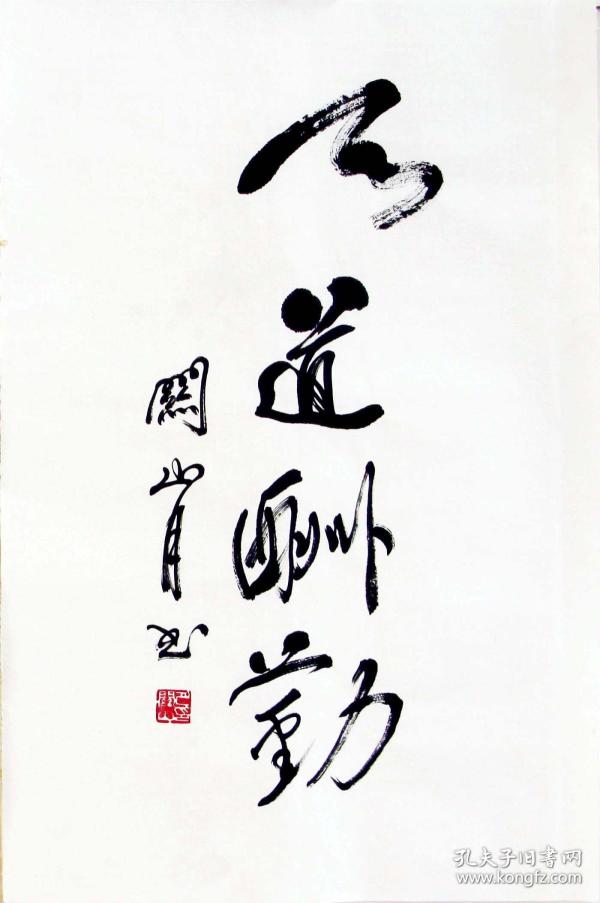 天道酬勤
關山月书
孔夫子旧书网
www.kongfz.com